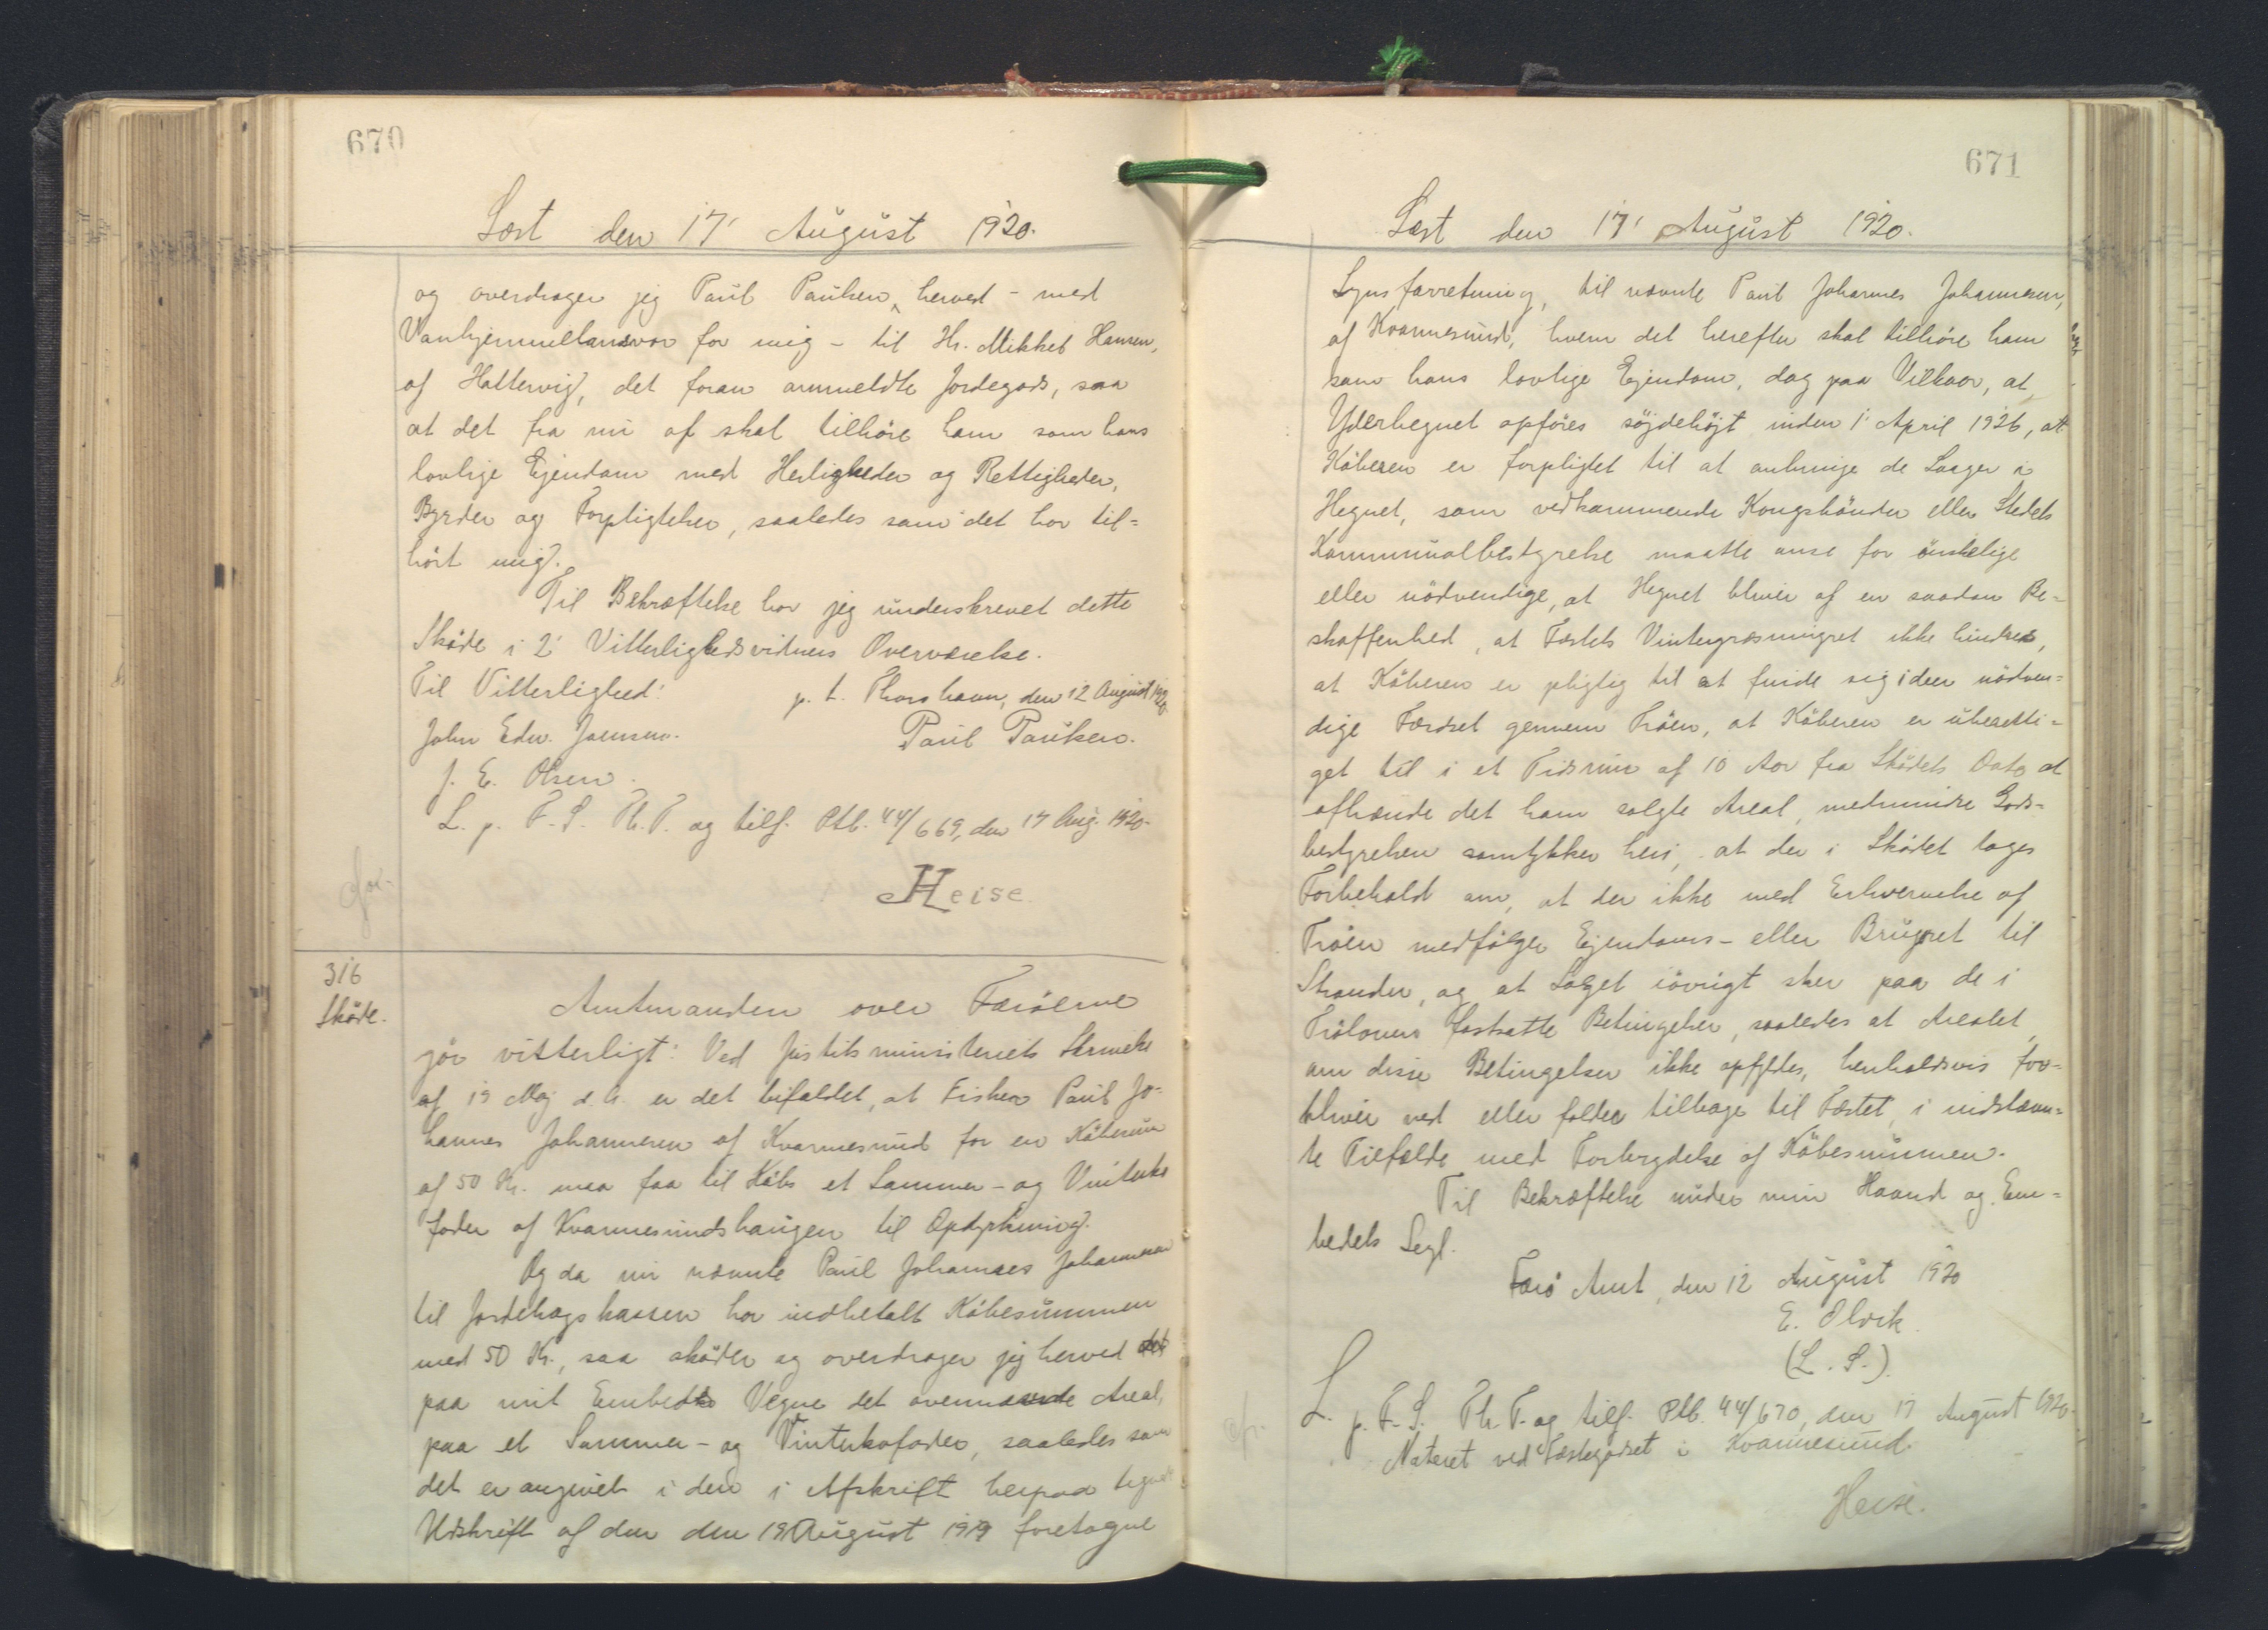 670
Læst den 17' August 1920.
og overdrager jeg Paul Paulsen, herved - med
Vanhjemmelansvar for mig - til Hr. Mikkel Hansen,
af Hattervig, det foran anmeldte Jordegods, saa
at det fra nu af skal tilhöre ham som hans
lovlige Ejendom med Herligheder og Rettigheder,
Byrder og Forpligtelser, saaledes som det har til=
hört mig.
Til Bekræftelse har jeg underskrevet dette
Sköde i 2' Vitterlighedsvidners Overværelse.
Til Vitterlighed: p. t. Thorshavn, den 12 August 1920.
John Edw. Joensen. Paul Paulsen.
J. E. Olsen.
L. p. F. S. Th. T. og tilf. Ptb. 44/669, den 17 Aug. 1920.
Heise
316
Sköde.
Amtmanden over Færöerne
gör vitterligt: Ved Justitsministeriets Skrivelse
af 19 Maj d. A. er det bifaldet, at Fisker Paul Jo=
hannes Johannesen af Kvannesund for en Köbesum
af 50 Kr. maa faa til Köbs et Sommer- og Vinterko
foder af Kvannesundshaugen til Opdyrkning.
Og da nu nævnte Paul Johannes Johannesen
til Jordebogskassen har indbetalt Köbesummen
med 50 Kr., saa sköder og overdrager jeg herved
paa mit Embeds Vegne det ovennævnte Areal,
paa et Sommer- og Vinterkofoder, saaledes som
det er angivet i den i Afskrift herpaa tegnede
Udskrift af den den 19 August 1919 foretagne
671
Læst den 17' August 1920.
Synsforretning, til nævnte Paul Johannes Johannesen,
af Kvannesund, hvem det herefter skal tilhöre ham
som hans lovlige Ejendom, dog paa Vilkaar, at
Yderhegnet opföres söjdehöjt inden 1' April 1926, at
Köberen er forpligtet til at anbringe de Laager i
Hegnet, som vedkommende Kongsbönder eller Stedets
Kommunalbestyrelse maatte anse for önskelige
eller nödvendige, at Hegnet bliver af en saadan Be=
skaffenhed, at Fæstets Vintergræsningret ikke hindres,
at Köberen er pligtig til at finde sig i den nödven=
dige Færdsel gennem Tröen, at Köberen er uberetti=
get til i et Tidsrum af 10 Aar fra Sködets Dato at
afhænde det ham solgte Areal, medmindre Gods=
bestyrelsen samtykker heri, at der i Sködet tages
Forbehold om, at der ikke med Erhvervelse af
Tröen medfölger Ejendoms- eller Brugsret til
Stranden, og at Salget iövrigt sker paa de i
Trölovens fastsatte Betingelser, saaledes at Arealet,
om disse Betingelser ikke opfyldes, henholdsvis for=
bliver ved eller falder tilbage til Fæstet, i sidstnævn=
te Tilfælde med Fortrydelse af Köbesummen.
Til Bekræftelse under min Haand og Em=
bedets Segl.
Færö Amt, den 12 August 1920
E. Olrik.
(L. S.)
L. p. F. S. Th. T. og tilf. Ptb. 44/670, den 17 August 1920.
Noteret ved Fæstegodset i Kvannesund.
Heise.